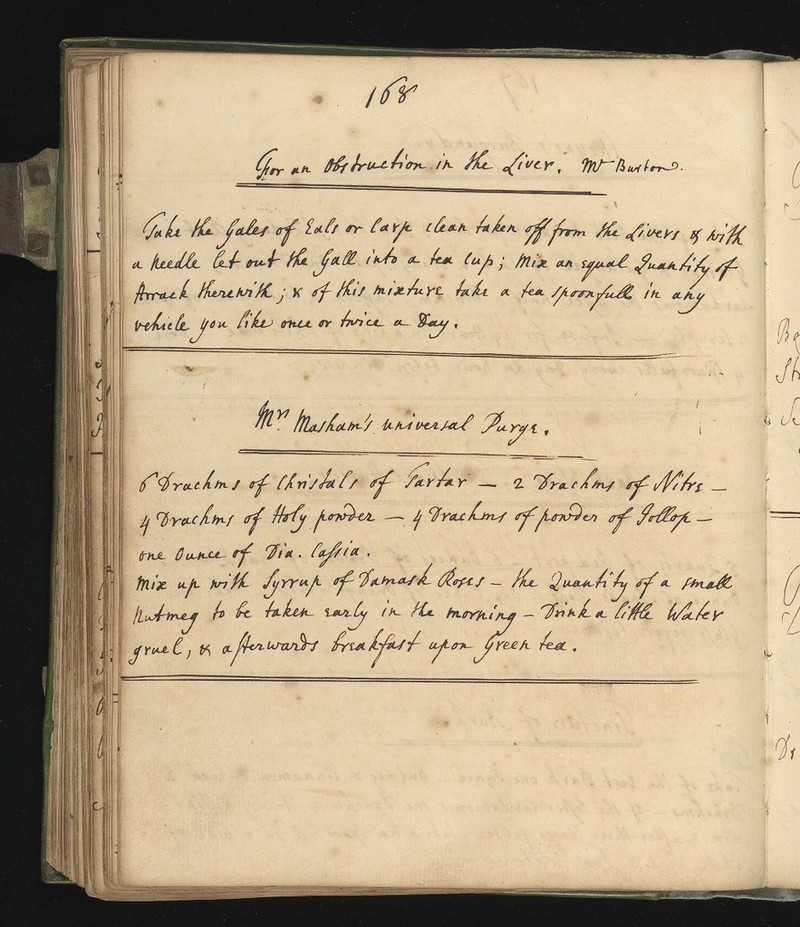 168
For an Obstruction in the Liver. Mr Burton.
Take the Gales of Eals or Carp clean taken off from the Livers & with
a Needle let out the Gall into a tea Cup; Mix an equal Quantity of
Arrack therewith; & of this mixture take a tea spoonfull in any
vehicle you like once or twice a Day.
Mrs Masham's universal Purge.
6 Drachms of Christals of Tartar — 2 Drachms of Nitre —
4 Drachms of Holy powder — 4 Drachms of powder of Jollop —
one Ounce of Dia. Cassia.
Mix up with Syrrup of Damask Roses — the Quantity of a small
Nutmeg to be taken early in the morning — Drink a little Water
gruel, & afterwards breakfast upon Green tea.